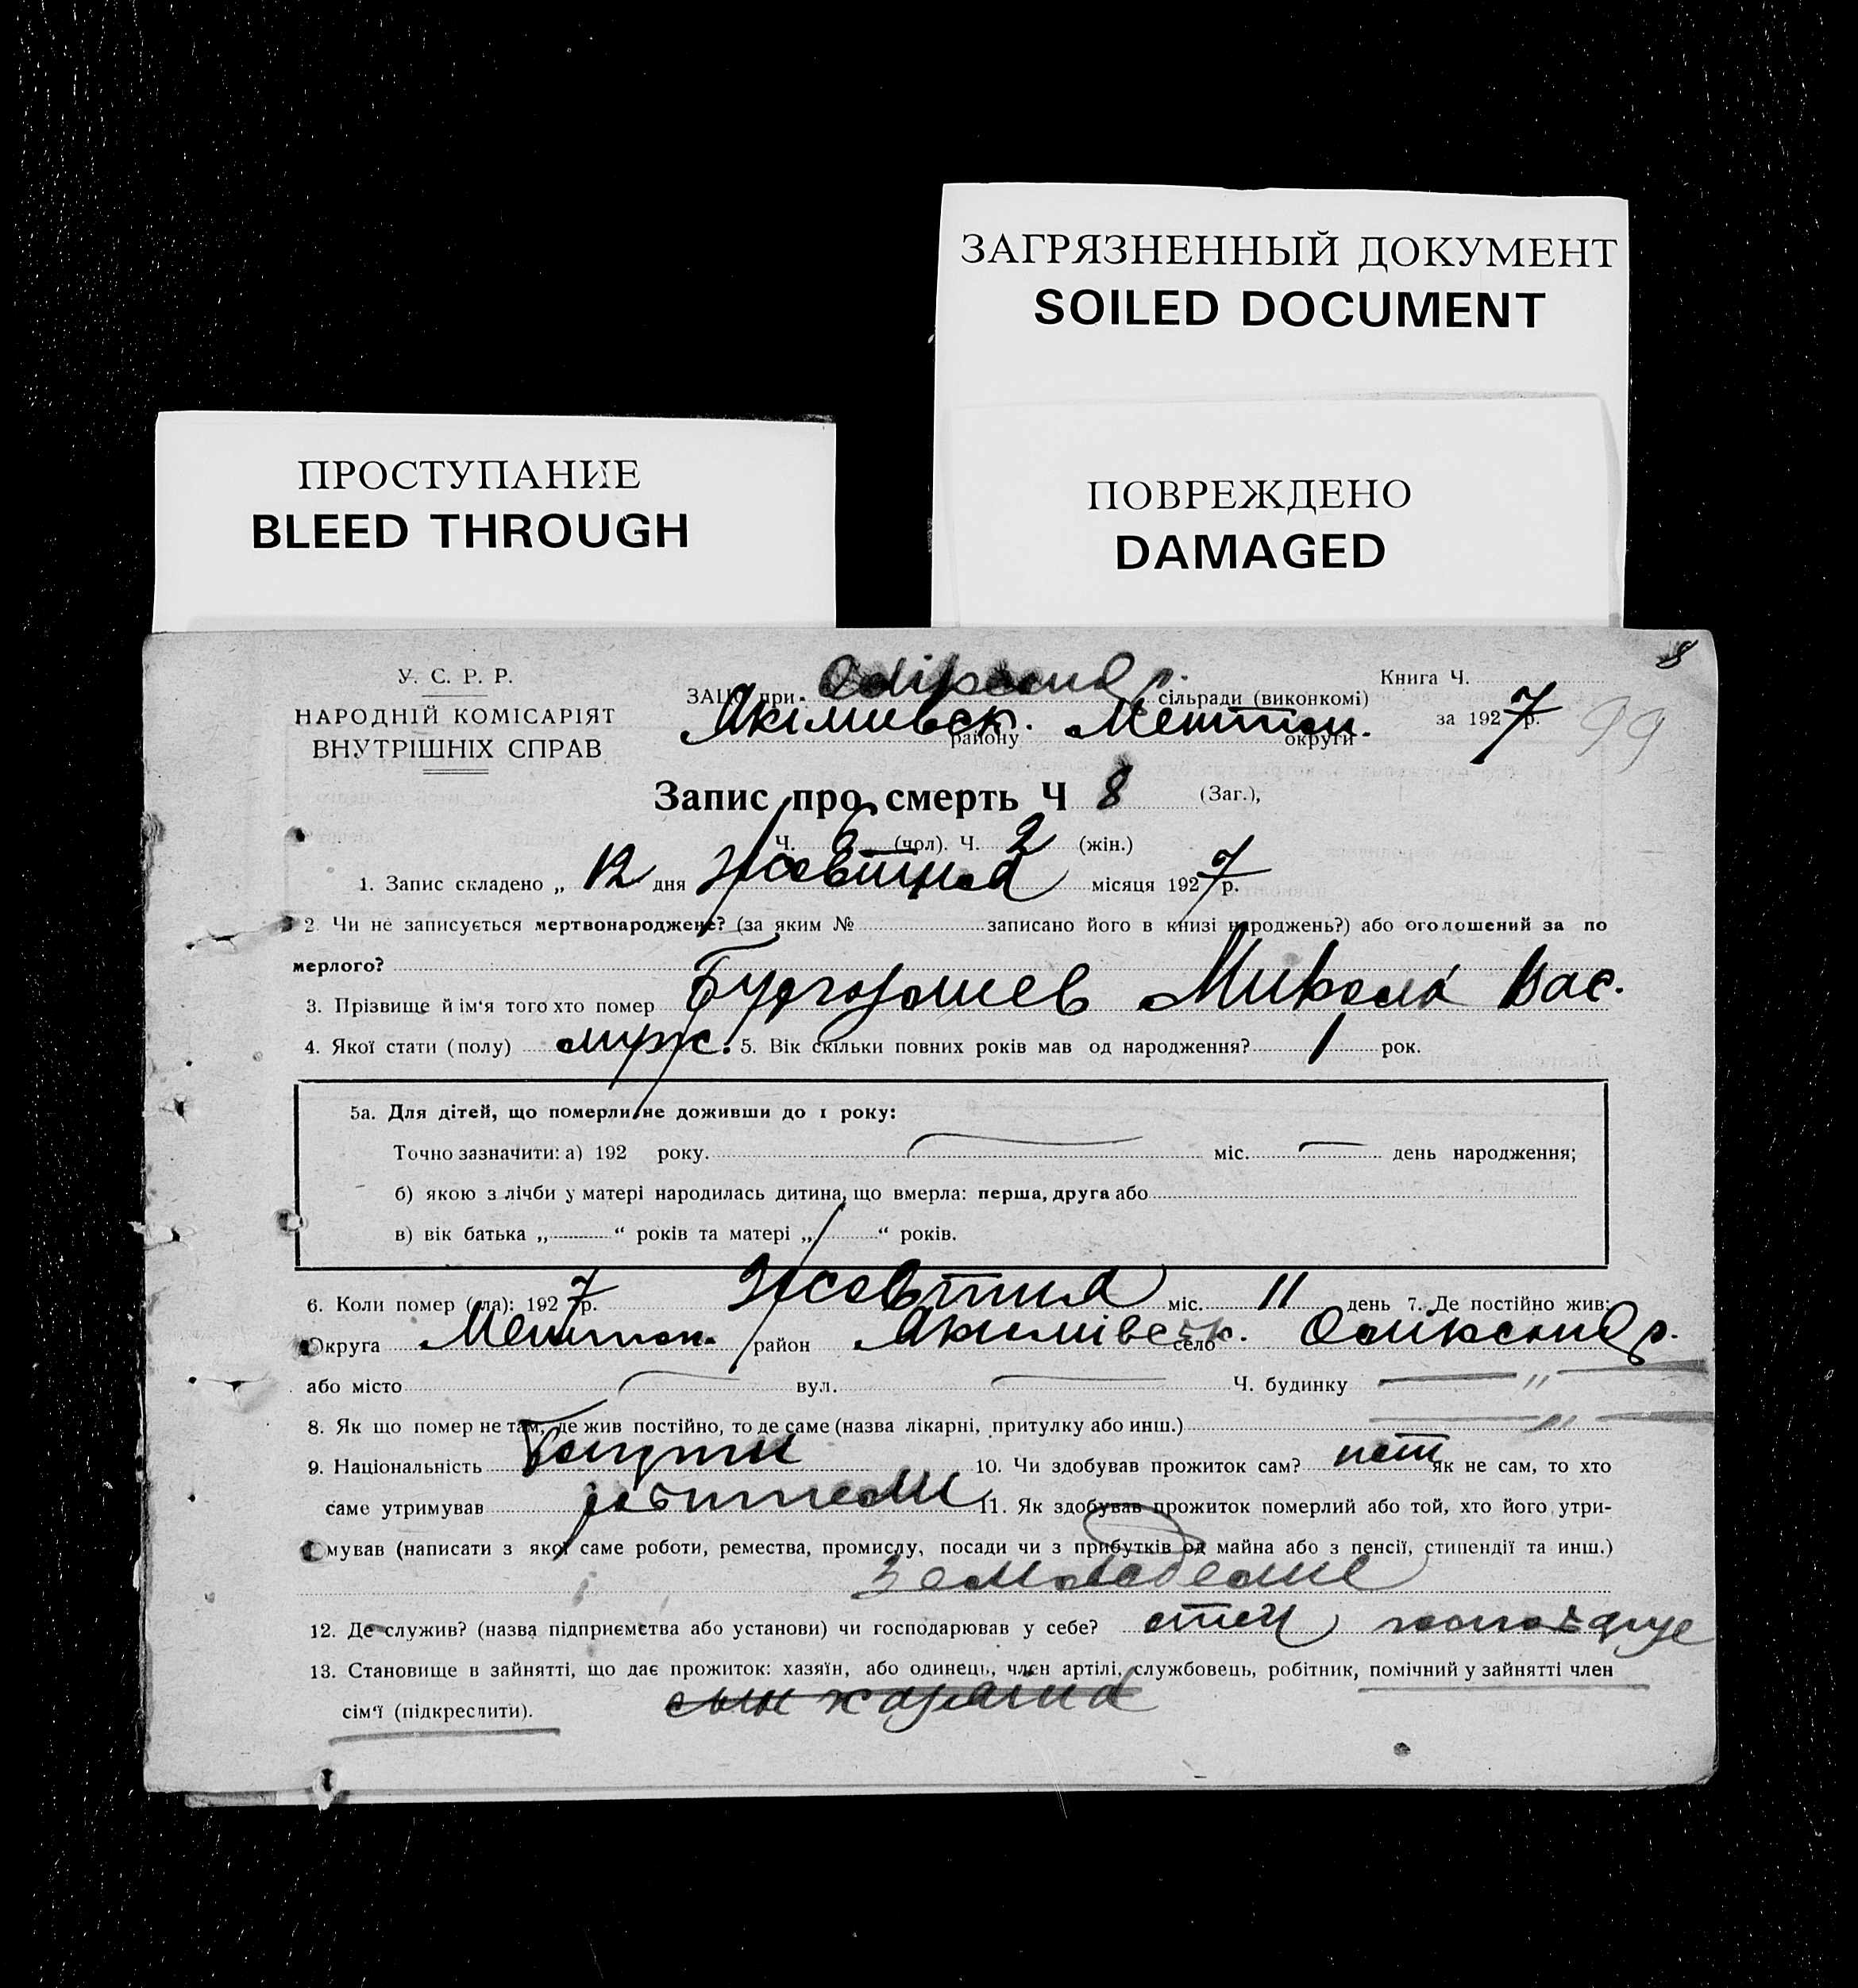 ЗАГРЯЗНЕННЫЙ ДОКУМЕНТ
SOILED DOCUMENT
ПРОСТУПАНИЕ
BLEED THROUGH
ПОВРЕЖДЕНО
DAMAGED
8
У. С. Р. Р.
НАРОДНІЙ КОМІСАРІЯТ
ВНУТРІШНІХ СПРАВ
ЗАЦС при сільради (виконкомі)
Якимовск. району округи
Книга Ч.
за 1927 р. 99
Запис про смерть Ч 8 (Заг.),
Ч. 6 (чол). Ч. 2 (жін.)
1. Запис складено „ 12 дня Жовтня місяця 1927 р.
2. Чи не записується мертвонароджене? (за яким № записано його в книзі народжень?) або оголошений за по
мерлого?
3. Прізвище й ім'я того хто помер Микола Вас.
4. Якої стати (полу) муж. 5. Вік скільки повних років мав од народження? 1 рок.
5а. Для дітей, що померли не доживши до 1 року:
Точно зазначити: а) 192 року. міс. день народження;
б) якою з лічби у матері народилась дитина, що вмерла: перша, друга або
в) вік батька „ “ років та матері „ “ років.
6. Коли помер (ла): 1927 р. Жовтня міс. 11 день 7. Де постійно жив:
Округа район Якимівськ. село
або місто вул. Ч. будинку — „ —
8. Як що помер не там, де жив постійно, то де саме (назва лікарні, притулку або инш.) — „ —
9. Національність 10. Чи здобував прожиток сам? нет як не сам, то хто
саме утримував 11. Як здобував прожиток померлий або той, хто його утри-
мував (написати з якої саме роботи, ремества, промислу, посади чи з прибутків од майна або з пенсії, стипендії та инш.)
12. Де служив? (назва підприємства або установи) чи господарював у себе?
13. Становище в зайнятті, що дає прожиток: хазяїн, або одинець, член артілі, службовець, робітник, помічний у зайнятті член
сім'ї (підкреслити). сын хазяина